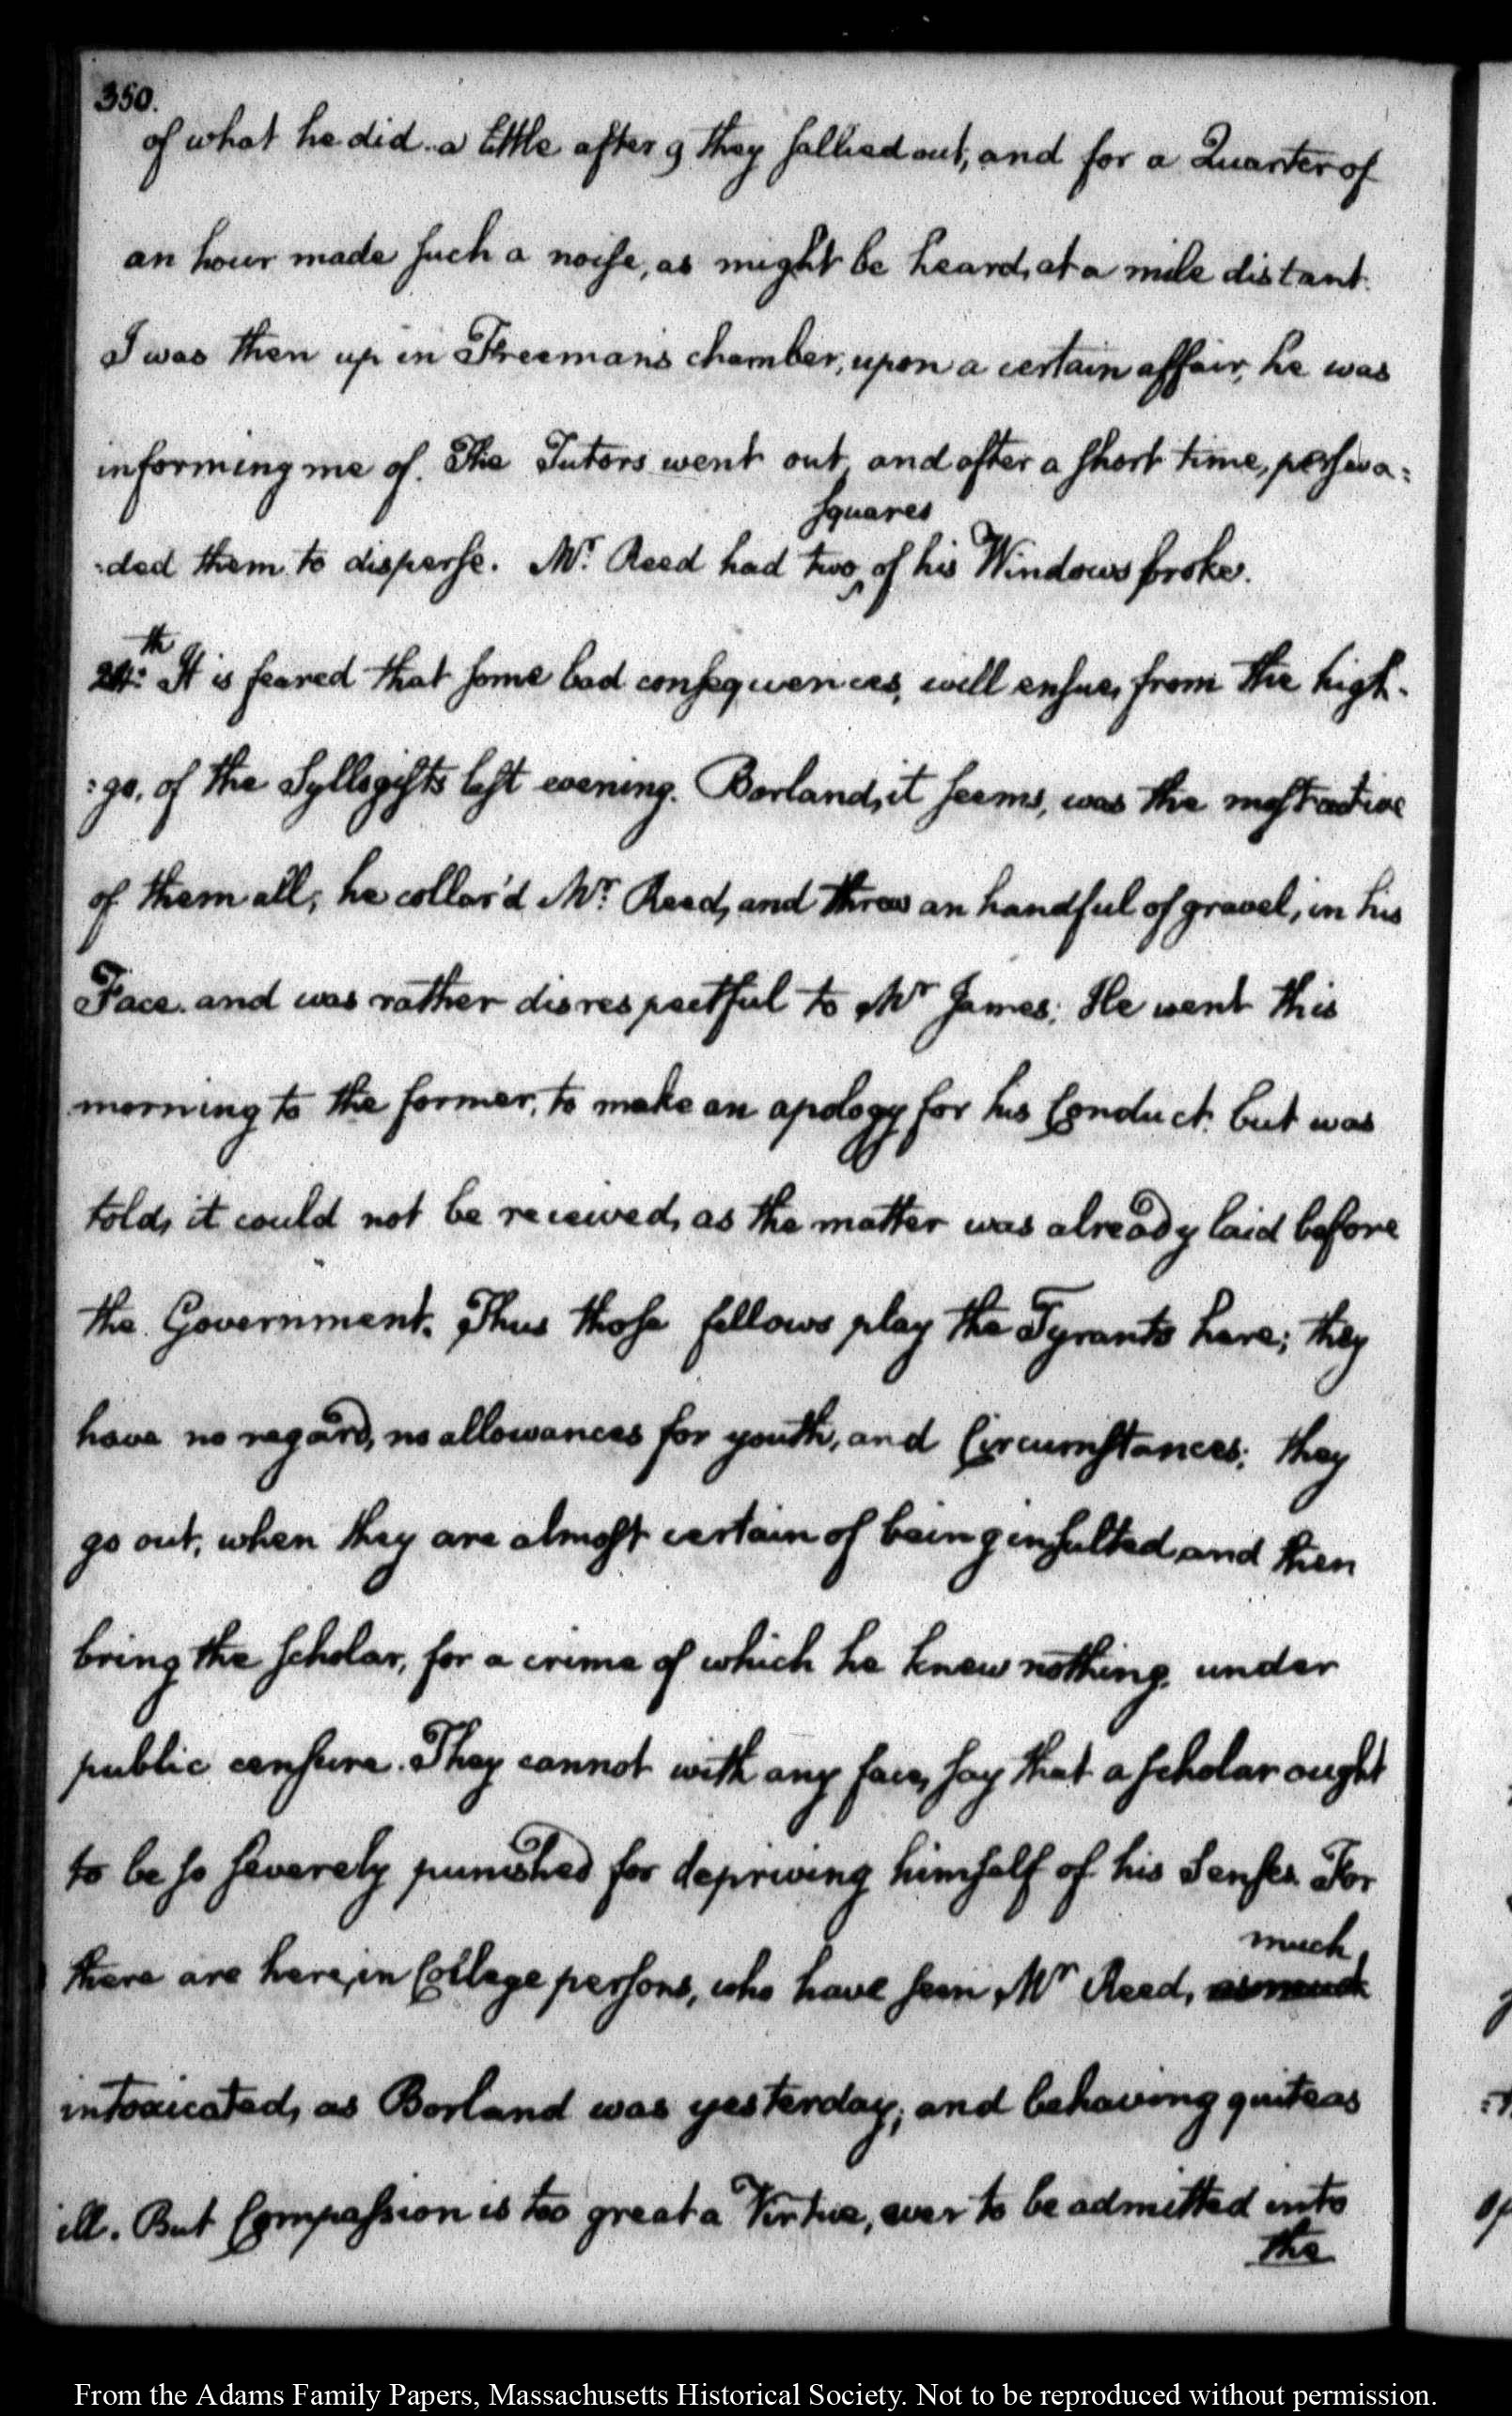 350.
of what he did. a little after 9 they sallied out, and for a Quarter of
an hour made such a noise, as might be heard, at a mile distant.
I was then up in Freeman's chamber, upon a certain affair, he was
informing me of. The Tutors went out, and after a short time, perswa=
squares
=ded them to disperse. Mr. Reed had two of his Windows broke.
24th. It is feared that some bad consequences, will ensue, from the high-
=go, of the Syllogists last evening. Borland, it seems, was the most active
of them all; he collar'd Mr. Reed, and threw an handful of gravel, in his
Face. and was rather disrespectful to Mr James; He went this
morning to the former, to make an apology for his Conduct. but was
told, it could not be recieved, as the matter was already laid before
the Government. Thus those fellows play the Tyrants here; they
have no regard, no allowances for youth, and Circumstances; they
go out, when they are almost certain of being insulted, and then
bring the scholar, for a crime of which he knew nothing, under
public censure. They cannot with any face, say that a scholar ought
to be so severely punished for depriving himself of his Senses. For
much
there are here, in College persons, who have seen Mr Reed, as much
intoxicated, as Borland was yesterday, and behaving quite as
ill. But Compassion is too great a Virtue, ever to be admitted into
the
From the Adams Family Papers, Massachusetts Historical Society. Not to be reproduced without permission.